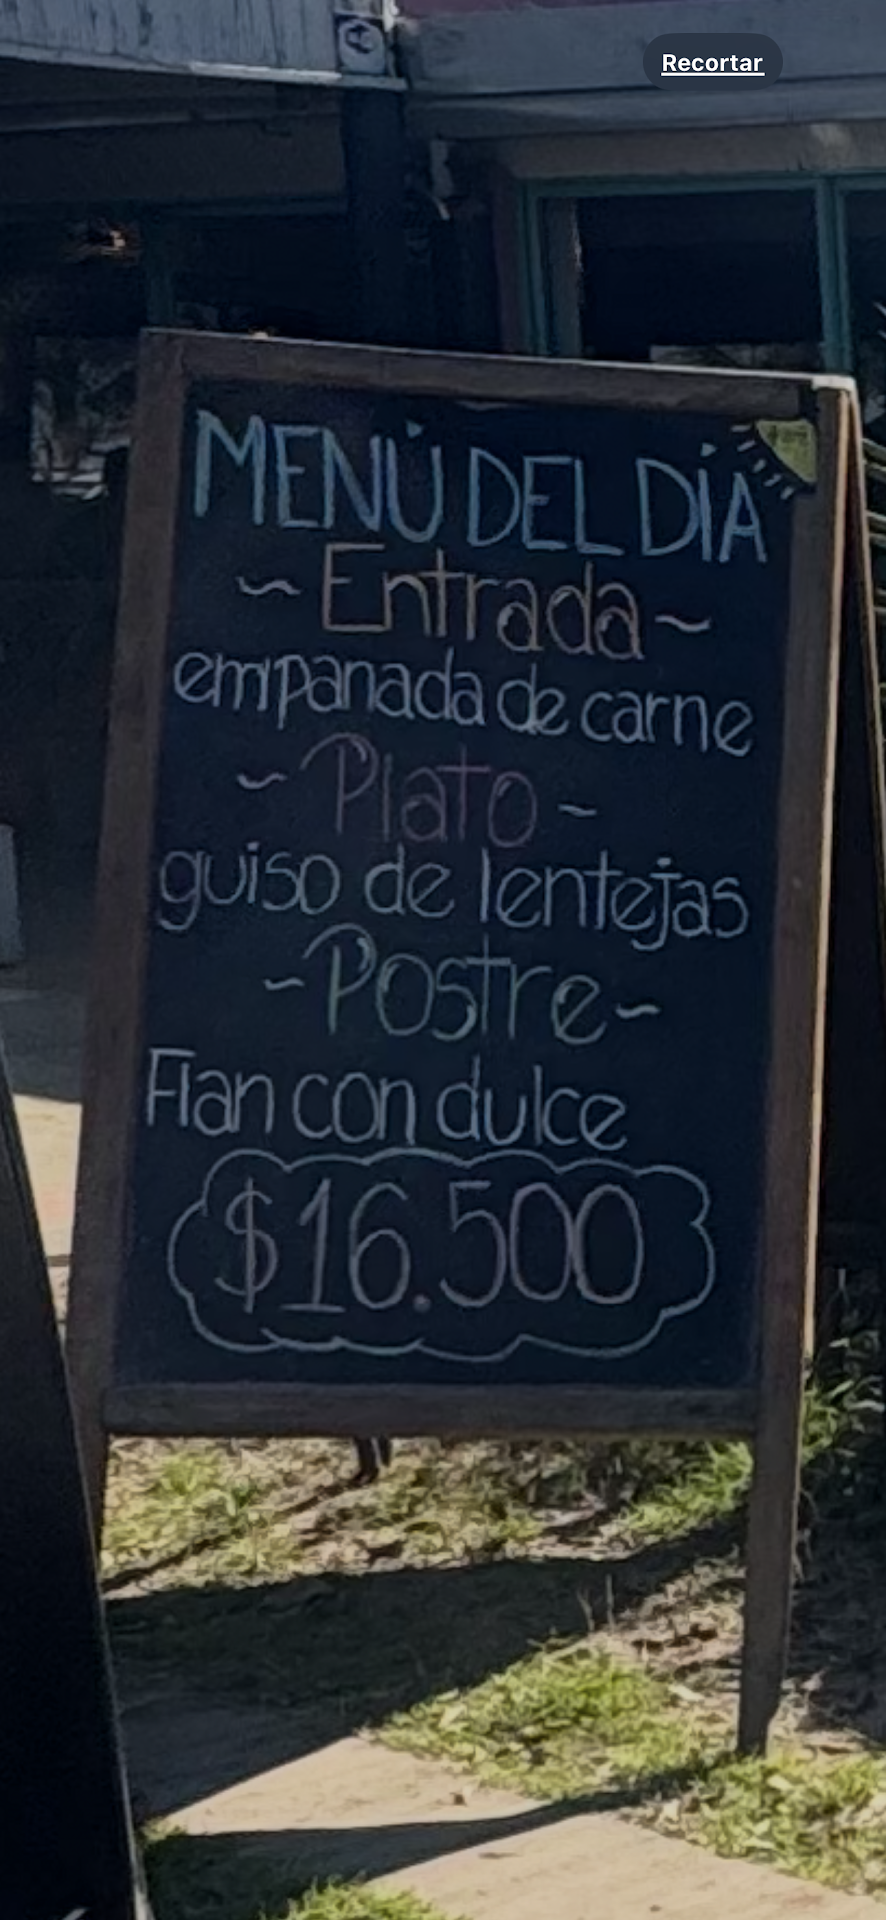 Recortar
MENÚ DEL DÍA
~ Entrada ~
empanada de carne
~ Plato ~
guiso de lentejas
~ Postre ~
Flan con dulce
$16.500